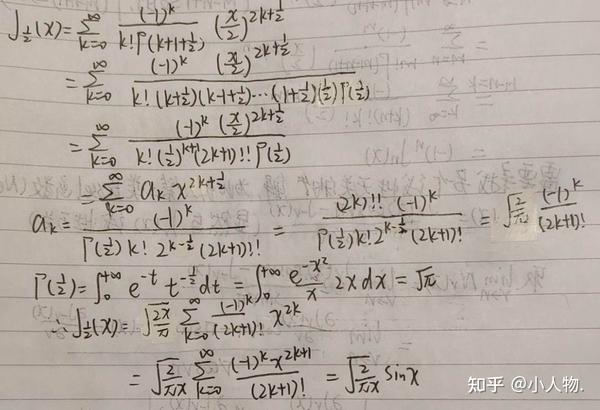 J_{\frac{1}{2}}(x) = \sum_{k=0}^{\infty} \frac{(-1)^k}{k! Γ(k+1+\frac{1}{2})} (\frac{x}{2})^{2k+\frac{1}{2}}
= \sum_{k=0}^{\infty} \frac{(-1)^k (\frac{x}{2})^{2k+\frac{1}{2}}}{k! (k+\frac{1}{2})(k-1+\frac{1}{2})\cdots(1+\frac{1}{2})(\frac{1}{2})Γ(\frac{1}{2})}
= \sum_{k=0}^{\infty} \frac{(-1)^k (\frac{x}{2})^{2k+\frac{1}{2}}}{k! (\frac{1}{2})^{k+1} (2k+1)!! Γ(\frac{1}{2})}
= \sum_{k=0}^{\infty} a_k x^{2k+\frac{1}{2}}
a_k = \frac{(-1)^k}{Γ(\frac{1}{2}) k! 2^{k-\frac{1}{2}} (2k+1)!!} = \frac{(2k)!! (-1)^k}{Γ(\frac{1}{2}) k! 2^{k-\frac{1}{2}} (2k+1)!} = \sqrt{\frac{2}{π}} \frac{(-1)^k}{(2k+1)!}
Γ(\frac{1}{2}) = \int_0^{+\infty} e^{-t} t^{-\frac{1}{2}} dt = \int_0^{+\infty} \frac{e^{-x^2}}{x} 2x dx = \sqrt{π}
∴ J_{\frac{1}{2}}(x) = \sqrt{\frac{2x}{π}} \sum_{k=0}^{\infty} \frac{(-1)^k}{(2k+1)!} x^{2k}
= \sqrt{\frac{2}{πx}} \sum_{k=0}^{\infty} \frac{(-1)^k x^{2k+1}}{(2k+1)!} = \sqrt{\frac{2}{πx}} sin x
知乎 @小人物.